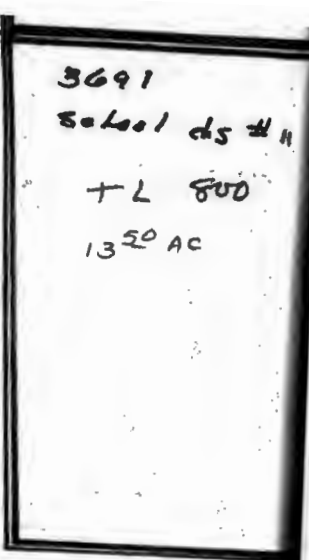 3691
School ds # 11
T L 800
13 50 AC